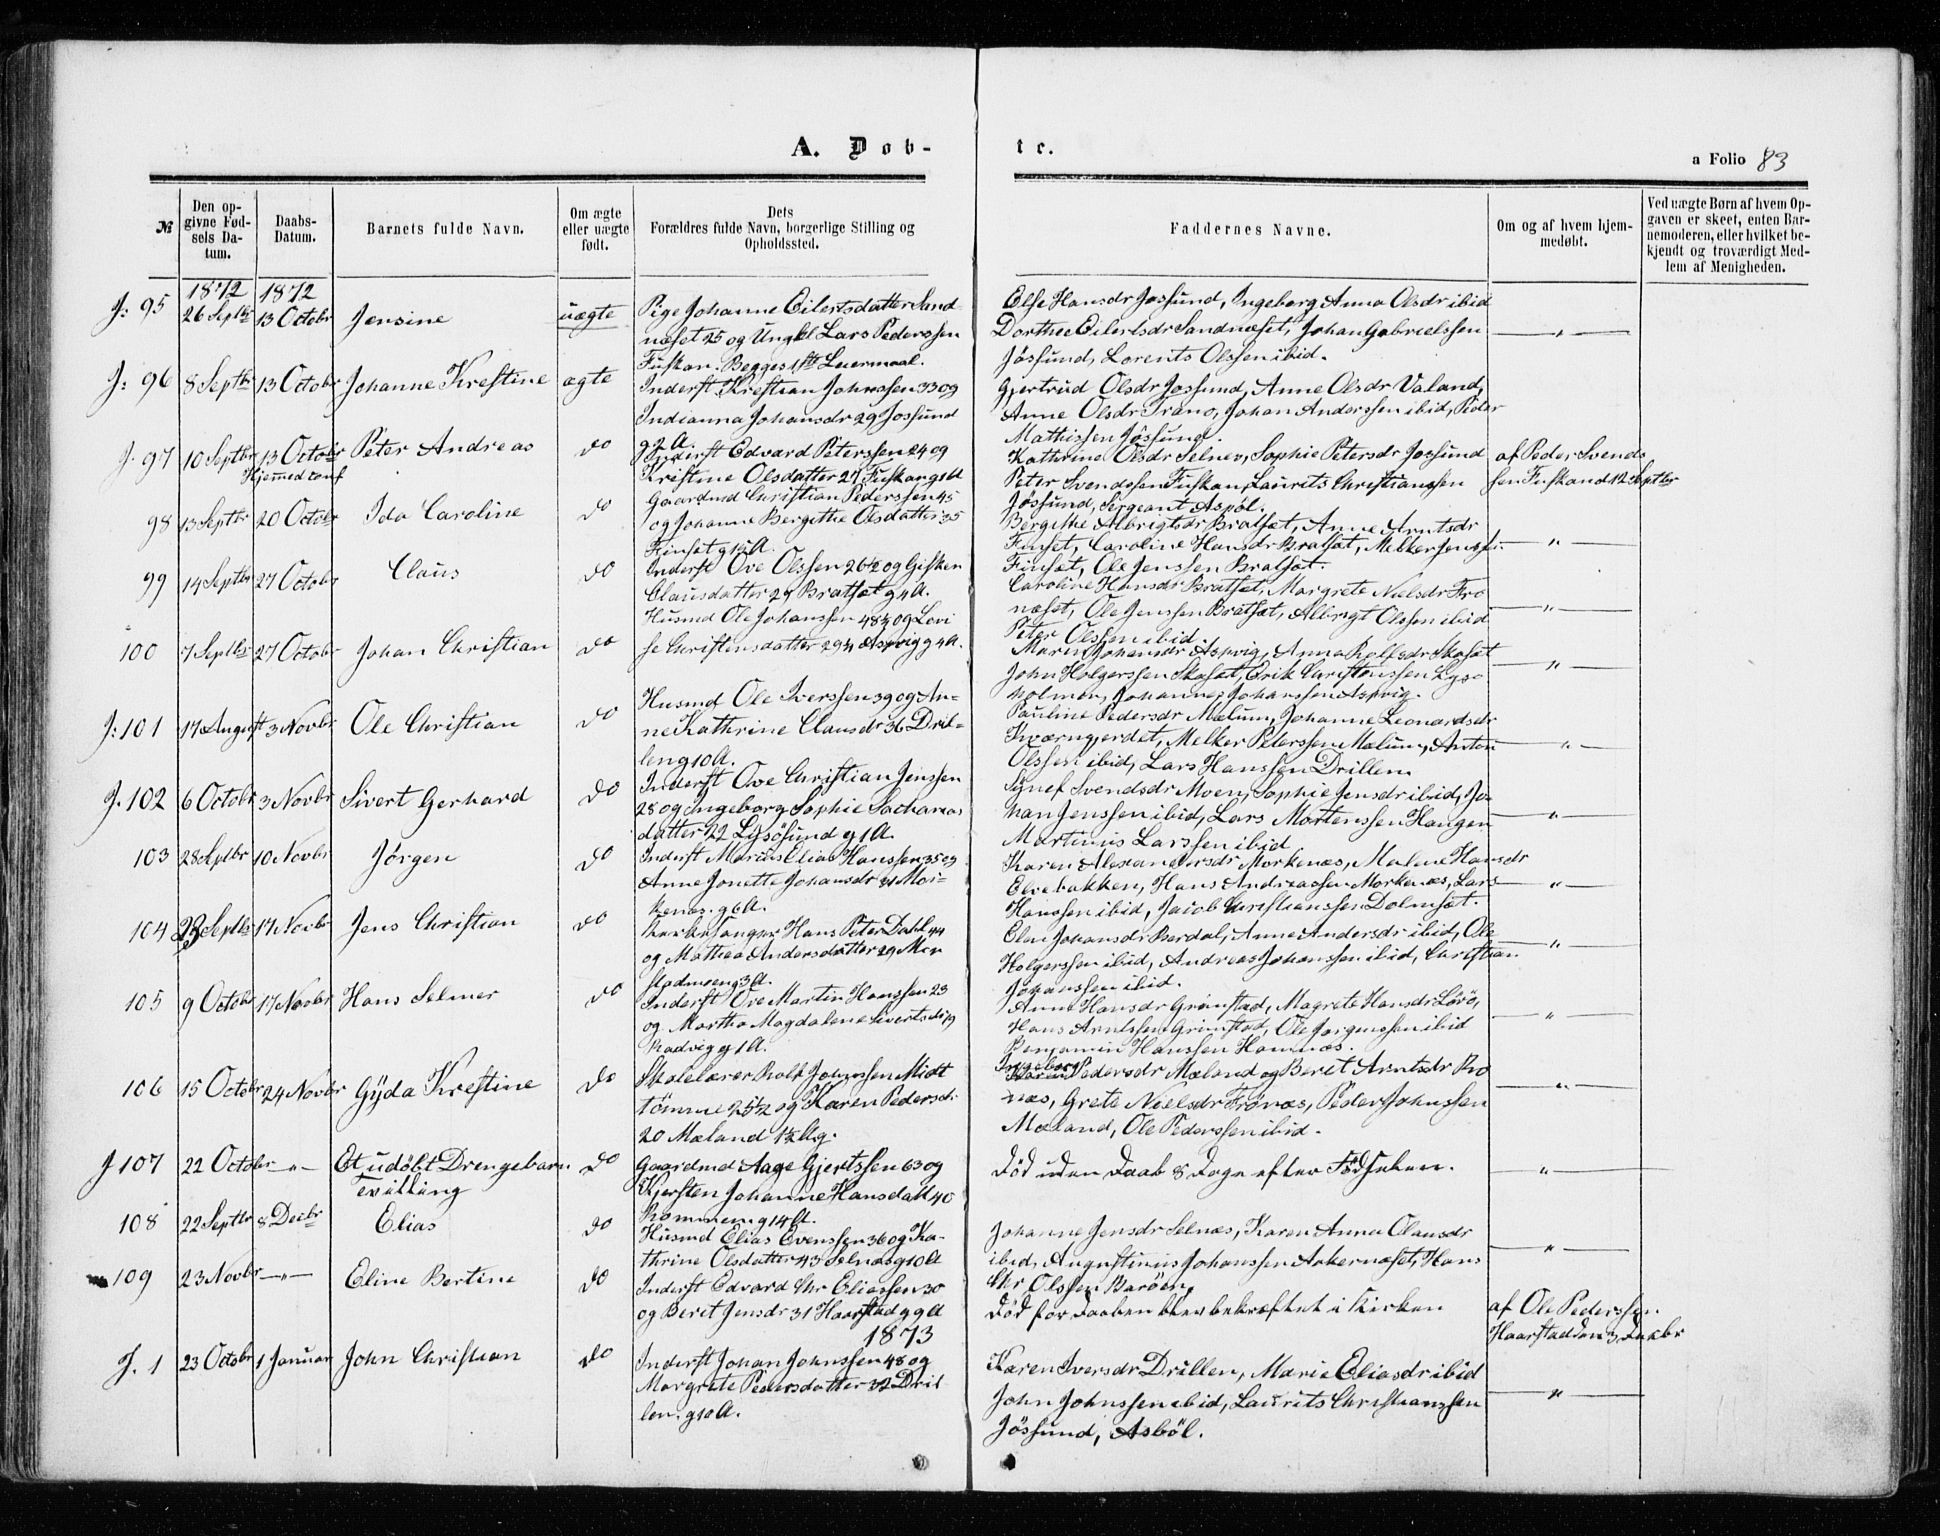 A. Dob-
te.
a Folio 83
№
Den opgivne Fødsels Datum.
Daabs-Datum.
Barnets fulde Navn.
Om ægte eller uægte født.
Dets Forældres fulde Navn, borgerlige Stilling og Opholdssted.
Faddernes Navne.
Om og af hvem hjemmedøbt.
Ved uægte Børn af hvem Opgaven er skeet, enten Barnemoderen, eller hvilket bekjendt og troværdigt Medlem af Menigheden.
1872 1872
J: 95 26 Septbr 13 Octobr Jensine uægte
Pige Johanne Eilertsdatter Sand-
næset 25 og Ungkl Lars Pederssen
Fuskan. Begges 1ste Leiermaal.
Else Hansdr Jøssund, Ingeborg Anna Olsdr ibid
Dorthee Eilertsdr Sandnæset, Johan Gabrielssen
Jøssund, Lorents Olssen ibid.
J: 96 8 Septbr 13 Octobr Johanne Krestine ægte
Inderst Krestian Johnssen 33 og
Indianna Johansdr 29 Jøssund
g 2 A.
Gjertrud Olsdr Jøssund, Anne Olsdr Valand,
Anne Olsdr Trano, Johan Anderssen ibid, Peder
Mathissen Jøssund.
J. 97 10 Septbr 13 Octobr Peter Andreas do
Hjemmed conf
Inderst Edvard Peterssen 24 og
Kristine Olsdatter 27 Fuskan g 1 A
Kathrine Olsdr Selnes, Sophie Petersdr Jøssund
Peter Svendssen Fuskan, Laurits Christianssen
Jøssund, Sergeant Aspøl.
af Peder Svends
sen Fuskan d 12 Septbr
98 13 Septbr 20 Octobr Ida Caroline do
Gaardmd Christian Pederssen 45
og Johanne Bergithe Olsdatter 35
Finset g 15 A.
Bergithe Albrigtsdr Bratsæt, Anne Arntsdr
Finset, Caroline Hansdr Bratsæt, Melker Jenssen
Finsæt, Ole Jenssen Bratsæt.
99 14 Septbr 27 Octobr Claus do
Inderst Ove Olssen 26½ og Gisken
Clausdatter 29 Bratsæt g 4 A.
Caroline Hansdr Bratsæt, Margrete Nielsdr Frø
næset, Ole Jenssen Bratsæt, Albrigt Olssen ibid
Peter Olssen ibid.
100 7 Septbr 27 Octobr Johan Christian do
Husmd Ole Johanssen 48¾ og Lovi
se Christensdatter 29¾ Aspvig g 4 A.
Maren Johansdr Aspvig, Anna Rolfsdr Skasæt
John Holgerssen Skasæt, Erik Christenssen Lysø
holmen, Johannes Johanssen Aspvig.
J: 101 17 August 3 Novbr Ole Christian do
Husmd Ole Iverssen 39 og An-
ne Kathrine Clausdr 36 Dril-
len g 10 A.
Pauline Pedersdr Mælum, Johanne Leonardsdr
Kværngjerdet, Melker Peterssen Mælum, Anton
Olssen ibid, Lars Hanssen Drillen.
J. 102 6 Octobr 3 Novbr Sivert Gerhard do
Inderst Ove Christian Jenssen
28 og Ingeborg Sophie Sacharias
datter 22 Lysøsund g 1 A.
Synef Svendsdr Moen, Sophie Jensdr ibid, Jo-
han Jenssen ibid, Lars Mortenssen Haugen
Martinus Larssen ibid
103 28 Septbr 10 Novbr Jørgen do
Inderst Marius Elias Hanssen 35 og
Anne Jonette Johansdr 31 Mor-
kenæs. g 6 A.
Karen Alexandersdr Morkenæs, Malene Hansdr
Elvebakken, Hans Andreassen Morkenæs, Lars
Hanssen ibid, Jacob Christianssen Dolmsæt.
104 23 Septbr 17 Novbr Jens Christian do
Kirkesanger Hans Peter Dahl 44
og Mathea Andersdatter 29 Mex
stadmoen g 3 A.
Elen Johansdr Berdal, Anne Andersdr ibid, Ole
Holgerssen ibid, Andreas Johanssen ibid, Christian
Johanssen ibid.
105 9 Octobr 17 Novbr Hans Selmer do
Inderst Ove Martin Hanssen 23
og Martha Magdalene Sivertsdr 19
Kadvig g 1 A.
Anne Hansdr Grønstad, Magrete Hansdr Sørø,
Hans Arntssen Grønstad, Ole Jørgenssen ibid
Benjamin Hanssen Hamnæs.
106 15 Octobr 24 Novbr Gÿda Krestine do
Skolelærer Rolf Johnssen Midt
tømme 25½ og Karen Pedersdr
20 Mæland 1½ Ag.
Ingeborg Pedersdr Mæland og Beret Arntsdr Ro
næs, Grete Nielsdr Frønæs, Peder Johnssen
Mæland, Ole Pederssen ibid.
J 107 22 Octobr " Et udøbt Drengebarn do
Tvilling
Gaardmd Aage Gjertssen 63 og
Kjersten Johanne Hansdatt 40
Rommen g 14 A.
Død uden Daab 8 Dage efter Fødselen.
108 22 Septbr 8 Decbr Elias do
Husmd Elias Evenssen 36 og Ka-
thrine Olsdatter 43 Selnæs g 10 A
Johanne Jensdr Selnæs, Karen Anna Olausdr
ibid, Augustinius Johanssen Aakernæset, Hans
Chr Olssen Barøen,
109 23 Novbr " Eline Bertine do
Inderst Edvard Chr Eliassen 30
og Beret Jensdr 31 Haarstad g 9 A
Død før Daaben blev bekræftet i Kirken
af Ole Pederssen
Haarstad den 3 Decbr
1873
J. 1 23 Octobr 1 Januar John Christian do
Inderst Johan Johnssen 48 og
Margrete Pedersdatter 32 Dril
len. g 10 A.
Karen Iversdr Drillen, Marie Eliasdr ibid
John Johnssen ibid, Laurits Christianssen
Jøssund, Asbøl.